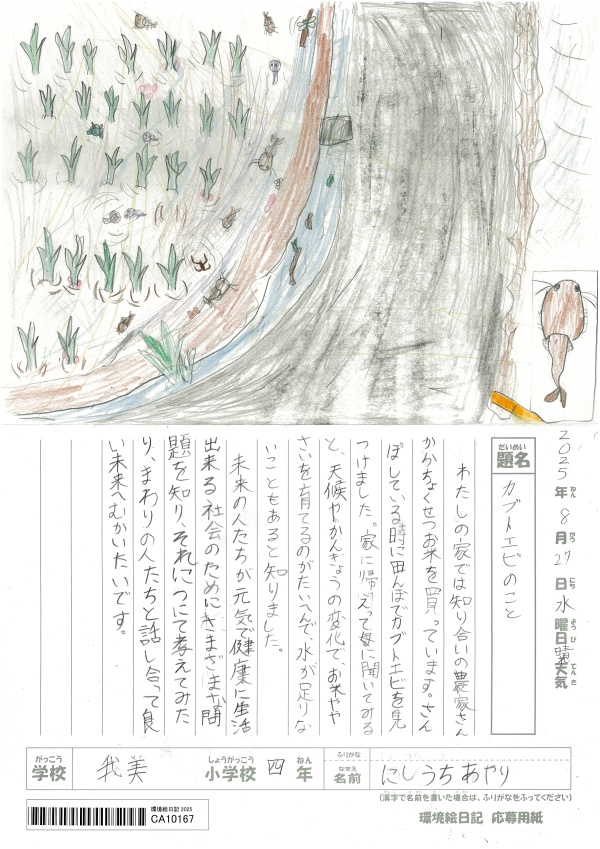 2025年8月27日水曜日晴天気
ねん
がつ
にち
ようび
てんき
だいめい
題名
カブトエビのこと
わたしの家では知り合いの農家さん
からちょくせつお米を買っています。さん
ぽしている時に田んぼでカブトエビを見
つけました。家に帰えって母に聞いてみる
と、天候やかんきょうの変化で、お米やや
さいを育てるのがたいへんで、水が足りな
いこともあると知りました。
未来の人たちが元気で健康に生活
出来る社会のためにさまざまな問
題を知り、それにつにて考えてみた
り、まわりの人たちと話し合って良
い未来へむかいたいです。
がっこう
学校
我美
しょうがっこう
小学校
四
ねん
年
ふりがな
なまえ
名前
にしうちあやり
(漢字で名前を書いた場合は、ふりがなをふってください)
環境絵日記 2025
CA10167
環境絵日記 応募用紙